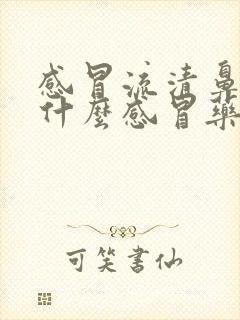 感冒流清鼻
什麼感冒藥
可笑書仙